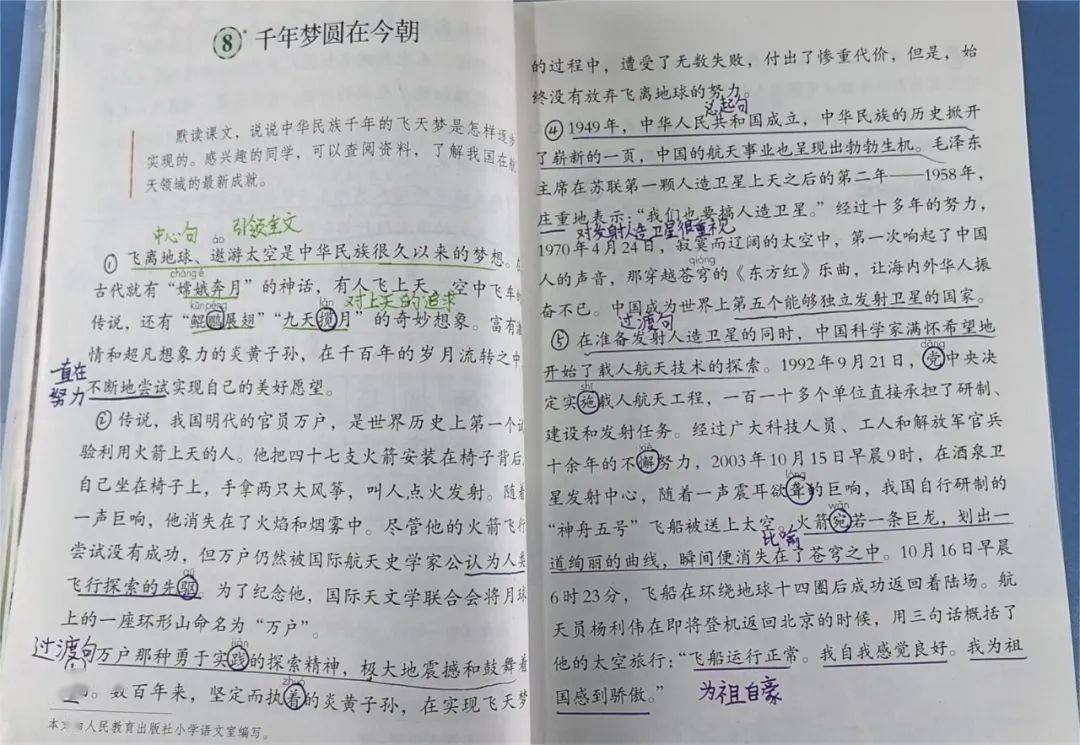 8* 千年梦圆在今朝
默读课文，说说中华民族千年的飞天梦是怎样逐步
实现的。感兴趣的同学，可以查阅资料，了解我国在航
天领域的最新成就。
中心句 引领全文
áo
① 飞离地球、遨游太空是中华民族很久以来的梦想。
cháng é
古代就有“嫦娥奔月”的神话，有人飞上天，空中飞车的
kūn péng lǎn 对上天的追求
传说，还有“鲲鹏展翅”“九天揽月”的奇妙想象。富有
情和超凡想象力的炎黄子孙，在千百年的岁月流转之中
一直在努力
不断地尝试实现自己的美好愿望。
② 传说，我国明代的官员万户，是世界历史上第一个试
验利用火箭上天的人。他把四十七支火箭安装在椅子背后，
自己坐在椅子上，手拿两只大风筝，叫人点火发射。随着
一声巨响，他消失在了火焰和烟雾中。尽管他的火箭飞行
尝试没有成功，但万户仍然被国际航天史学家公认为人类
qū
飞行探索的先驱。为了纪念他，国际天文学联合会将月球
上的一座环形山命名为“万户”。
过渡句 jiàn
万户那种勇于实践的探索精神，极大地震撼和鼓舞着
zhuó
数百年来，坚定而执着的炎黄子孙，在实现飞天梦
人民教育出版社小学语文室编写。
的过程中，遭受了无数失败，付出了惨重代价，但是，始
终没有放弃飞离地球的努力。
总起句
④ 1949年，中华人民共和国成立，中华民族的历史掀开
了崭新的一页，中国的航天事业也呈现出勃勃生机。毛泽东
主席在苏联第一颗人造卫星上天之后的第二年——1958年，
庄重地表示：“我们也要搞人造卫星。”经过十多年的努力，
对发射人造卫星很重视
1970年4月24日，寂寞而辽阔的太空中，第一次响起了中国
qióng
人的声音，那穿越苍穹的《东方红》乐曲，让海内外华人振
奋不已。中国成为世界上第五个能够独立发射卫星的国家。
过渡句
⑤ 在准备发射人造卫星的同时，中国科学家满怀希望地
dǎng
开始了载人航天技术的探索。1992年9月21日，党中央决
shī
定实施载人航天工程，一百一十多个单位直接承担了研制、
建设和发射任务。经过广大科技人员、工人和解放军官兵
xiè
十余年的不懈努力，2003年10月15日早晨9时，在酒泉卫
lóng
星发射中心，随着一声震耳欲聋的巨响，我国自行研制的
wǎn
“神舟五号”飞船被送上太空。火箭宛若一条巨龙，划出一
比喻
道绚丽的曲线，瞬间便消失在了苍穹之中。10月16日早晨
6时23分，飞船在环绕地球十四圈后成功返回着陆场。航
天员杨利伟在即将登机返回北京的时候，用三句话概括了
他的太空旅行：“飞船运行正常。我自我感觉良好。我为祖
国感到骄傲。”
为祖自豪